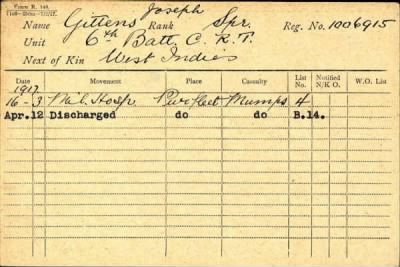 Form R. 149.
Name Gittens Joseph Rank Spr. Reg. No. 1006915
Unit 6th Batt. C. R. T.
Next of Kin West Indies
Date Movement Place Casualty List No. Notified N/K O. W.O. List
1917
16-3 Mil. Hosp. Purfleet Mumps 4
Apr.12 Discharged do do B.14.